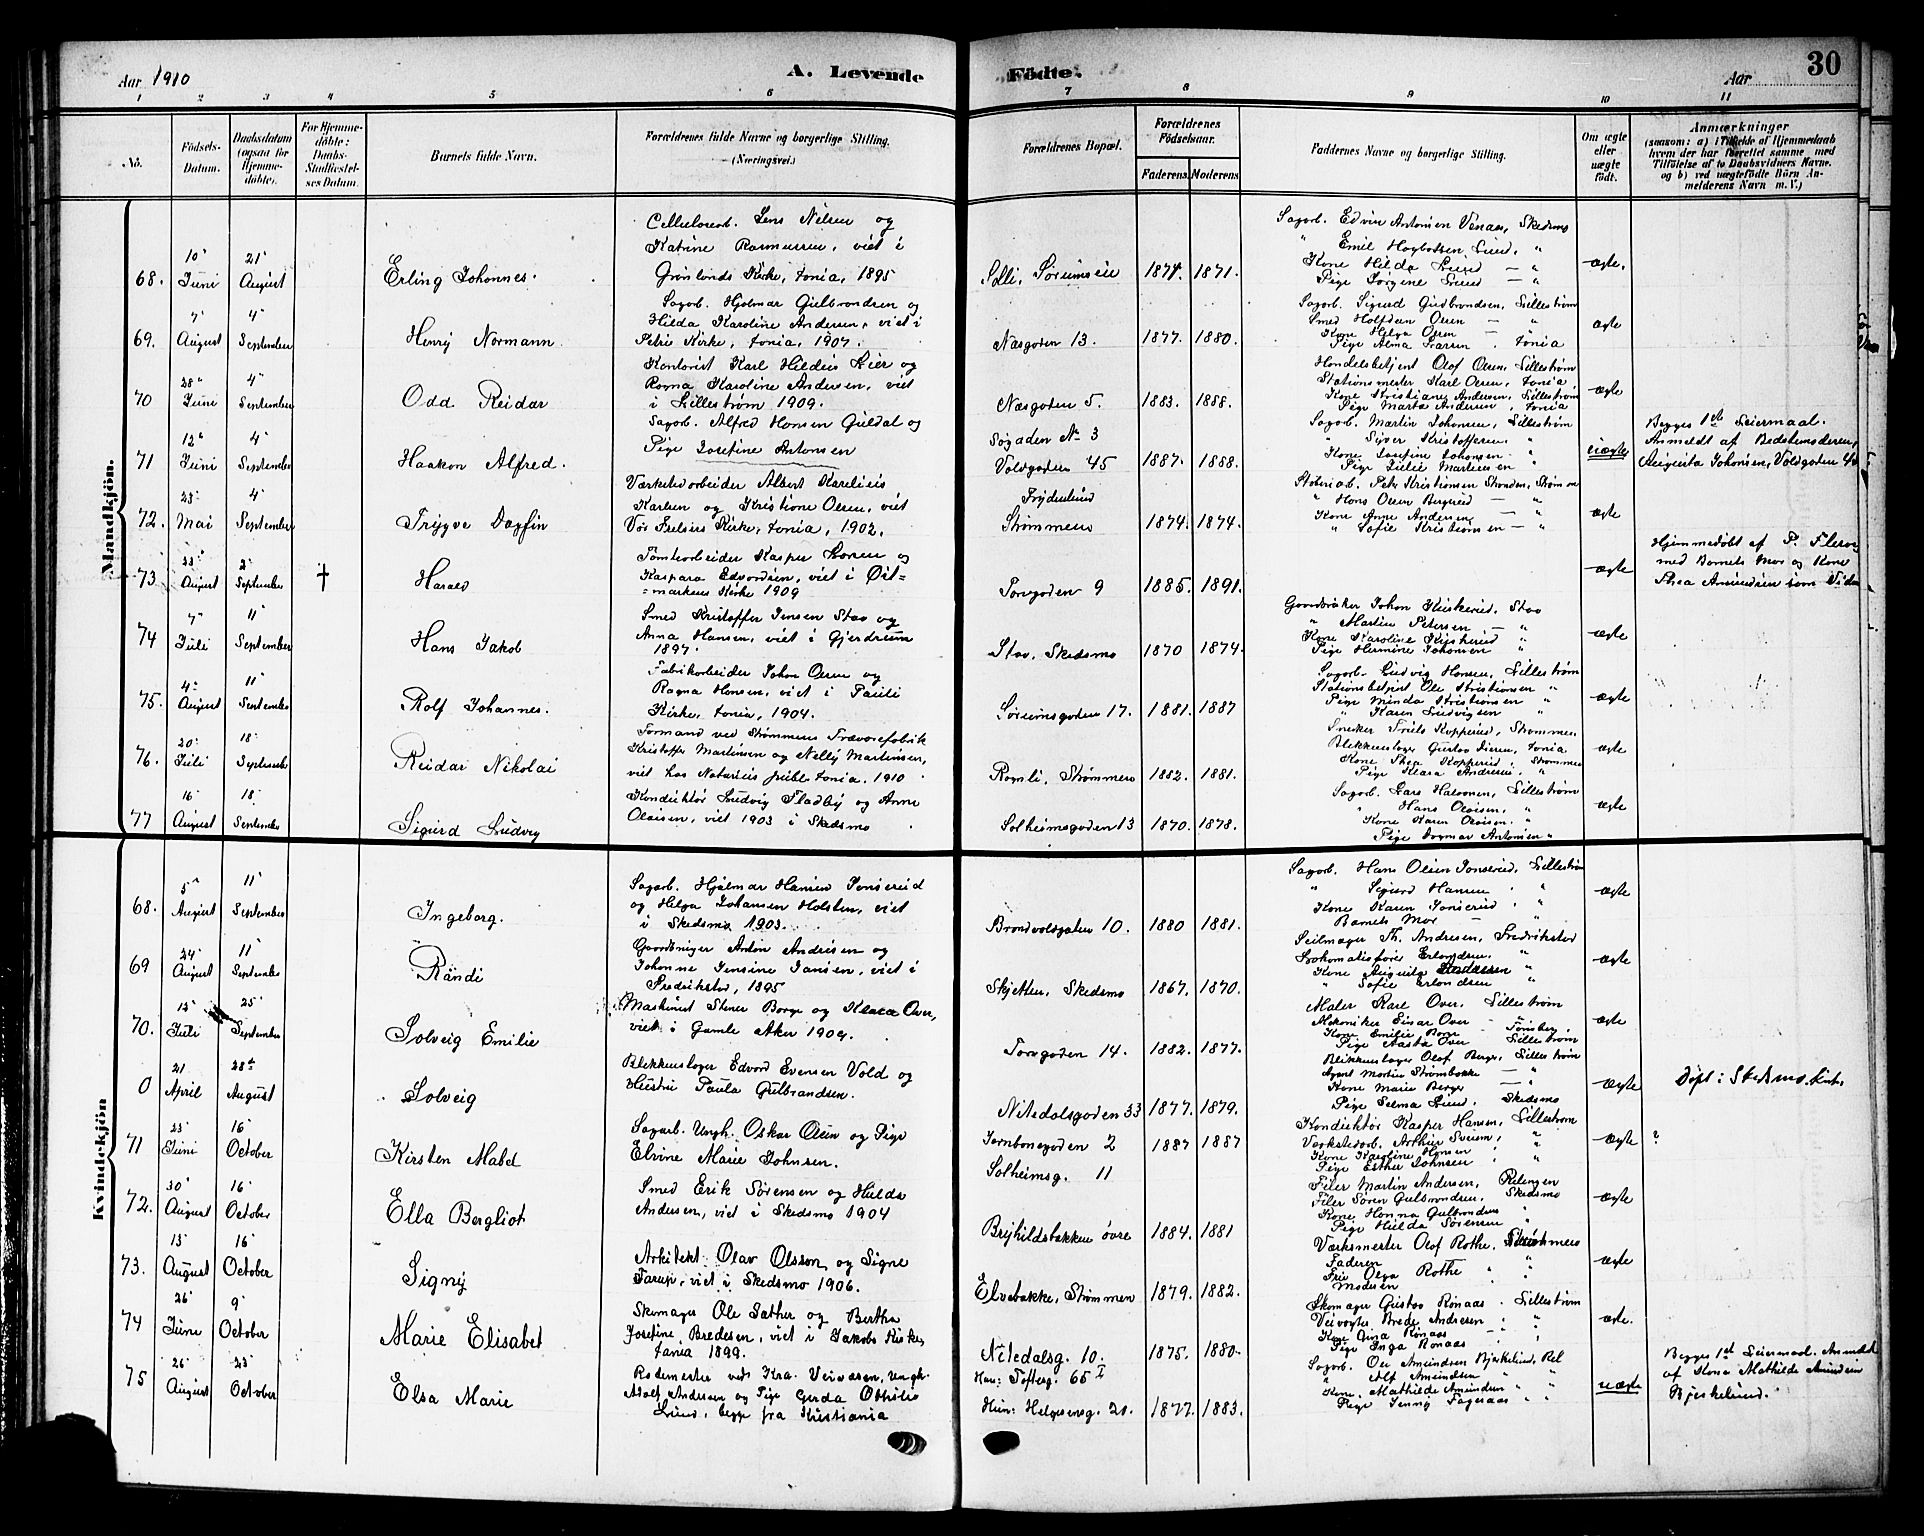 Aar 1910
A. Levende Födte.
Aar
30
1 2 3 4 5 6 7 8 9 10 11
No.
Födsels-Datum.
Daabsdatum (ogsaa for Hjemme-döbte).
For Hjemme-döbte: Daabs-Stadfæstel-ses Datum.
Barnets fulde Navn.
Forældrenes fulde Navne og borgerlige Stilling. (Næringsvei.)
Forældrenes Bopæl.
Forældrenes Födselsaar.
Faderens. Moderens.
Faddernes Navne og borgerlige Stilling.
Om ægte eller uægte födt.
Anmærkninger
(saasom: a) i Tilfælde af Hjemmedaab
hvem der har forrettet samme med
Tilföielse af to Daabsvidners Navne.
og b) ved uægtefödte Börn An-
melderens Navn m. V.)
Mandkjön.
68. 10' Juni 21' August
Erling Johannes.
Cellulosearb. Jens Nilsen og
Katrine Rasmussen, viet i
Grønlands Kirke, Xania, 1895
Solli, Sørumsveien
1874. 1871.
Sagarb. Edvin Antonsen Venaas, Skedsmo
" Emil Hagbartsen Lund, "
Kone Hilda Lund — "
Pige Jørgine Lund — "
ægte.
69. 7' August 4' September
Henry Normann.
Sagarb. Hjalmar Gulbrandsen og
Hilda Karoline Andersen, viet i
Petri Kirke, Xania, 1907.
Næsgaden 13.
1877. 1880.
Sagarb. Sigurd Gudbrandsen, Lillestrøm
Smed Halfdan Olsen — "
Kone Helga Olsen — "
Pige Alma Larsen . Xania
ægte
70 28' Juni 4' September
Odd Reidar
Kontorist Karl Hildeus Lier og
Ragna Karoline Andersen, viet
i Lillestrøm 1909.
Næsgaden 5.
1883. 1888.
Handelsbetjent Olaf Olsen, Lillestrøm
Stationsmester Karl Olsen, Xania.
Kone Kristiane Andersen, Lillestrøm
Pige Marta Andersen, Xania
ægte
71 12' Juni 4' September
Haakon Alfred.
Sagarb. Alfred Hansen Guldal og
Pige Josefine Antonsen
Søgaden No 3
Voldgaden 45
1887. 1888.
Sagarb. Martin Johansen, Lillestrøm
" Syver Kristoffersen. "
Kone Josefine Johansen "
Pige Lilli Martinsen "
uægte
Begges 1ste Leiermaal.
Anmeldt af Bedstemoderen,
Augusta Johansen, Voldgaden 45
72. 23' Mai 4' September
Trygve Dagfin
Værkstedarbeider Albert Karelius
Karlsen og Kristiane Olsen, viet
Vor Frelsers Kirke, Xania, 1902.
Frydenlund
Strømmens
1874. 1874.
Stolarb. Petr Kristiansen Stranden, Strømmen
" Hans Olsen Bergerud — "
Kone Anne Andersen "
" Sofie Kristiansen — "
ægte
73 23' August 2' September †
Harald
Tomtearbeider Kasper Larsen og
Kaspara Edvardsen, viet i Øst=
=markens Kirke 1909
Torvgaden 9
1885. 1891.
ægte
Hjemmedøbt af P.
med Barnets Mor og Kone
Thea Amundsen som Vidne
74 7' Juli 11' September
Hans Jakob
Smed Kristoffer Jensen Stav og
Anna Hansen, viet i Gjerdrum
1897.
Stav. Skedsmo
1870 1874.
Gaardbruker Johan Huskerud. Stav
" Martin Petersen — "
Kone Karoline Huskerud "
Pige Hermine Johansen "
ægte
75. 4' August 11' September
Rolf Johannes.
Fabrikarbeider Johan Olsen og
Ragna Hansen, viet i Pauli
Kirke, Xania, 1904.
Sørumsgaden 17.
1881. 1887
Sagarb. Ludvig Hansen, Lillestrøm
Stationsbetjent Ole Kristiansen "
Pige Minda Kristiansen "
" Karen Ludvigsen "
ægte
76. 20' Juli 18' September
Reidar Nikolai
Formand ved Strømmens Trævarefabrik
Kristoffer Martinsen og Nelly Martinsen,
viet hos Notarius publ. Xania. 1910
Rognli, Strømmens
1882. 1881.
Sneker Truls Kopperud, Strømmen
Blikkenslager Gustav Iversen, Xania
Kone Thea Kopperud, Strømmens
Pige Klara Andresen, "
ægte
77 16' August 18' September
Sigurd Ludvig
Konduktør Ludvig Fladby og Anne
Olaisen, viet 1903 i Skedsmo
Solheimsgaden 13
1870. 1878.
Sagarb. Lars Halvorsen, Lillestrøm
" Hans Olaisen. "
Kone Karen Olaisen. "
Pige Dagmar Antonsen "
ægte
Kvindekjön
68. 5' August 11' September
Ingeborg.
Sagarb. Hjalmar Hansen Tonserud
og Helga Johansen Holsten, viet
i Skedsmo 1903.
Brandvolsgaten 10.
1880 1881.
Sagarb. Hans Olsen Tonserud, Lillestrøm
" Sigurd Hansen . "
Kone Karen Tonserud . "
Barnets Mor — "
ægte
69 24' August 11' September
Randi
Gaardbruger Anton Andresen og
Johanne Jensine Jansen, viet i
Fredrikstad, 1895
Skjetten, Skedsmo
1867. 1870.
Seilmager Th. Andresen, Fredrikstad
Lokomotivfører Erlandsen. "
Kone Augusta Andresen "
" Sofie Erlandsen "
ægte
70. 12' Juli 25' September
Solveig Emilie
Maskinist Stener Borge og Klara Over,
viet i Gamle Aker 1909.
Torvgaden 14.
1882. 1877.
Maler Karl Over. Lillestrøm
Mekaniker Einar Over — "
Kone Emilie Borge — Tønsberg,
Pige Aasta Over Lillestrøm
ægte
0 21 April 28de August
Solveig
Blekkenslager Edvard Evensen Vold og
Hustru Paula Gulbrandsen.
Nitedalsgaden 33
1877. 1879.
Blikkenslager Olaf Berger, Lillestrøm
Agent Martin Strømbakke — "
Kone Marie Berger — "
Pige Selma Lund. Skedsmo
ægte
Døpt i Skedsmo Kirke
71 23' Juni 16' October
Kirsten Mabel
Sagarb. Ungk. Oskar Olsen og Pige
Elvine Marie Johnsen.
Jernbanegaden 2
Solheimsg. 11
1887 1887
Konduktør Kasper Hansen, Lillestrøm
Værkstedarb. Arthur Sveum, "
Kone Karoline Hansen "
Pige Esther Johnsen "
ægte
?
72. 30' August 16' October
Ella Bergliot
Smed Erik Sørensen og Hulda
Andersen, viet i Skedsmo 1904
Brynhildsbakken øvre
1884. 1881
Filer Martin Andersen, Rælingen
Filer Søren Gulbrandsen, Skedsmo
Kone Hanna Gulbrandsen "
Pige Hilda Sørensen "
ægte
73. 13' August 16' October
Signy
Arkitekt Olav Olsson og Signe
Tarup, viet i Skedsmo 1906.
Elvebakke, Strømmen
1879. 1882.
Værksmester Olaf Rothe, Strømmens
Faderen "
Fru Olga Rothe "
Moderen "
ægte
74 26' Juni 9' October
Marie Elisabet
Skomager Ole Sather og Bertha
Josefine Bredesen, viet i Jakobs Kirke,
Xania 1899.
Nitedalsg. 10.
1875. 1880.
Skomager Gustav Rønaas . Lillestrøm
Veivogter Brede Andresen "
Kone Gina Rønaas "
Pige Inga Rønaas
ægte.
75 26' August 23' October
Elsa Marie
Rodemester ved Kra. Veivæsen, Ungk.
Adolf Andersen og Pige Gerda Othilie
Lund, begge fra Kristiania
Han: Tofteg. 65 I
Hun: Helgesensg. 20.
1877. 1883.
Sagarb. Ole Amundsen Bjerkelund, Ræl
" Alf Amundsen "
Kone. Mathilde Amundsen "
Pige Jenny Fageraas "
uægte
Begges 1ste Leiermaal. Anmeldt
af Kona Mathilde Amundsen
Bjerkelund.